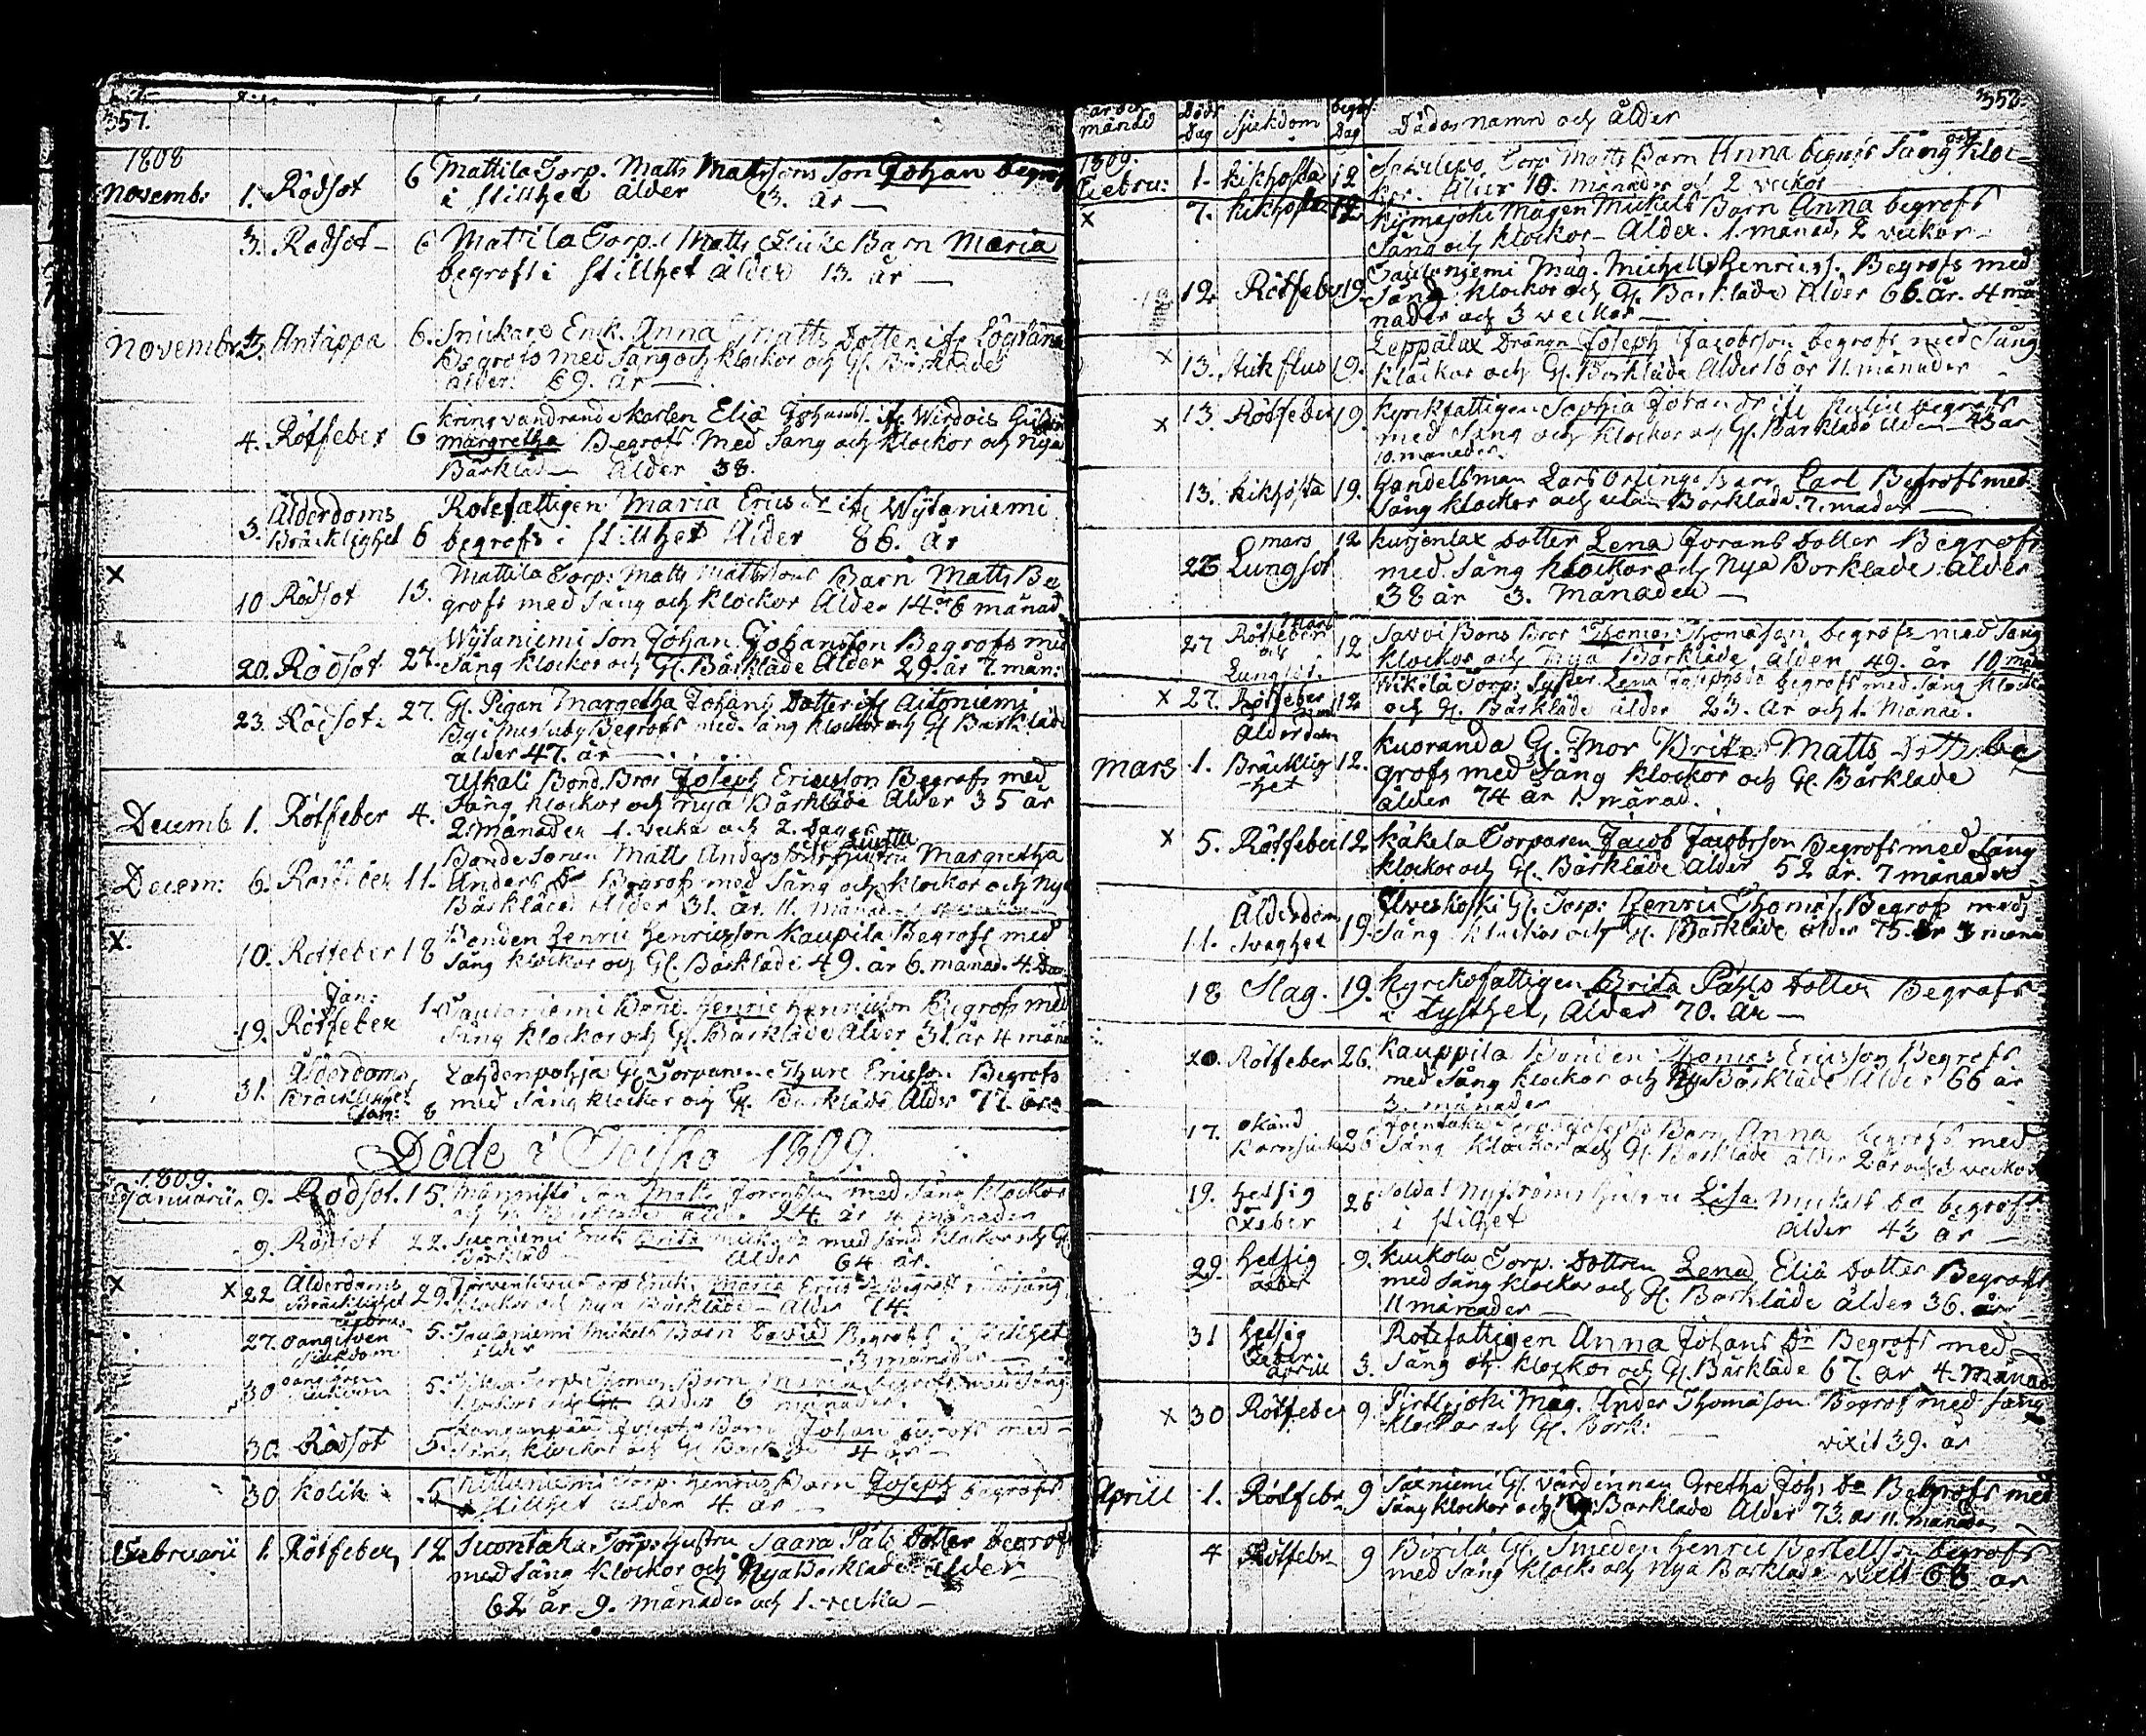 357.
1808
Novemb: 1. Rödsot 6 Mattila Torp. Matts Mattssons son Johan begrofs
i stillhet ålder 3. år —
3. Rödsot — 6 Mattila Torp. Matts Barn Maria
begrofs i stillhet ålder 13. år —
Novembr 3. Antäppa 6. Snickare Enk. Anna Matts Dotter ifr
Begrofs med sång och klockor och Gl. Bårkläde
ålder. 69. år —
4. Rötfeber 6 kringvandrande karlen Eliæ Johanss. ifr Wirdois Hustru
Margretha Begrofs med sång och klockor och nya
Bårkläd — Ålder 38.
3. Ålderdoms Bräcklighet 6 Rotefattigen Maria Ericsdr ifr Wytaniemi
begrofs i stillhet Ålder 86. år
X
10 Rödsot 13. Mattila Torp: Matts Mattssons Barn Matts Be
grofs med sång och klockor Ålder 14. år 6 månad
20. Rödsot 27. Wytaniemi son Johan Johansson Begrofs med
sång klockor och Gl. Bårkläde Ålder 29. år 7. mån:
23. Rödsot. 27. Gl. Pigan Margretha Johans Dotter ifr Aitoniemi
By Begrofs med sång klockor och Gl Bårkläde
ålder 47. år —
Decemb 1. Rötfeber 4. Uskali Bond. Bror Joseph Ericsson Begrofs med
sång klockor och nya Bårkläde Ålder 35 år
2. månader 1. vecka och 2. dagar
Decem: 6. Rötfeber 11. Bondesonen Matts Anderss Hustru Margretha
Anders Dr Begrofs med sång och klockor och nya
Bårkläde Ålder 31. år. 11. Månad
X.
10. Rotfeber 18 Bonden Henric Henricsson Kaupila Begrofs med
sång klockor och Gl. Bårkläde 49. år 6. månad. 4. Dag
Jan:
19. Rötfeber 1. Taulaniemi Bond. Henric Henricsson Begrofs med
sång klockor och Gl. Bårkläde Ålder 31. år 4 mån
31. Ålderdoms Bräcklighet Jan: 8 Lahdenpohja Gl. Torparen Thure Ericsson Begrofs
med sång klockor och Gl. Bårkläde Ålder 77. år
Döde i Teisko 1809.
1809.
Januarii 9. Rödsot. 15. son Matts med sång klockor
24. år 4 månader
9. Rödsot 22. Enk. Brita med sång klockor och Gl
Bårkläd — Ålder 64 år.
X X 22 Ålderdoms Bräcklighet 29. Torp Enk. Maria Erics Dr Begrofs med sång
klockor och nya Bårkläde — Ålder 74.
27. oangifven siukdom 5. Taulaniemi Mikels Barn David Begrofs i stillhet
ålder 3 månader
30 oangifven siukdom 5. Torp. Thomas Barn Maria Begrofs med sång
klockor och Gl. Ålder 6 månader.
30. Rödsot 5. Josephs Barn Johan begrofs med
sång klockor och Gl Bårkläde 4 år —
30. kolik 5 Torp. Henrics Barn Joseph begrofs
i stillhet ålder 4 år —
Februarii 1. Rötfeber, 12 Suontaka Torp. Hustru Saara Påls Dotter begrofs
med sång klockor och Nya Bårkläde ålder
62 år 9. månader och 1. vecka —
358.
År och månad Döds Dag Sjukdom begrof: Dag Dödas namn och ålder
1809.
Febru: 1. kikhosta 12 Torp. Matts Barn Anna begrofs sång och kloc-
kor. Ålder 10. månader och 2 veckor
X 7. kikhosta 12 Mågen Mickels Barn Anna begrofs
sång och klockor — Ålder. 1. månad, 2 veckor —
12 Rötfeber 19. Taulaniemi Måg. Michell Henricss. Begrofs med
sång klockor och Gl. Bårkläde Ålder 66. år. 4 må
nader och 3 veckor —
X 13. Stikflus 19. Leppälax Drängn Joseph Jacobsson begrofs med sång
klockor och Gl. Bårkläde Ålder 16 år 11. månader
X 13. Rötfeber 19. Kyrkfattigen Sophia Johansdr ifr begrofs
med sång och klockor och Gl. Bårkläde Ålder 43 år
10. månader.
13. kikhosta 19. Handelsman Lars Orlings Barn Carl Begrofs med
sång klockor och utan Bårkläde. 7. månader —
mars
23 Lungsot 12 Kurjenlax Dotter Lena Jörans Dotter Begrofs
med sång klockor och Nya Bårkläde Ålder
38 år 3. Månader —
mars
27 Rötfeber och Lungsot. 12 Savvi Bons Bror Thomas Thomasson begrofs med sång
klockor och nya Bårkläde, ålder 49. år 10 mån
X 27. Rötfeber 12 Wikilä Torp: syster Lena Josephsdr begrofs med sång klock
och Gl. Bårkläde ålder 23. år och 1. Månad.
Mars 1. Ålderdom Bräcklighet 12. Kuoranda Gl. Mor Brita Matts Dotter be
grofs med sång klockor och Gl. Bårkläde
ålder 74 år 1. månad.
X 5. Rötfeber 12 Käkela Torparen Jacob Jacobsson Begrofs med sång
klockor och Gl. Bårkläde Ålder 52 år. 7 månader
11. Ålderdom svaghet 19. Gl. Torp: Henric Thomass. Begrofs med
sång klockor och Gl. Bårkläde ålder 75. år 3 mån
18 Slag. 19. Kyrckofattigen Brita Påhls Dotter Begrafs
i tysthet, Ålder 70. år —
20. Rötfeber 26. Kauppila Bonden Thomas Ericsson Begrofs
med sång klockor och Nya Bårkläde Ålder 66 år
3. månader
17. okänd Barnsiukd 26 Torp. Josephs Barn Anna begrofs med
sång klockor och Gl. Bårkläde ålder 2 år och 3 veckor
19. Hetsig Feber 26 Soldat Nyströms Hustru Lisa Mickels Dr begrofs
i stilhet ålder 43 år —
29. Hetsig feber 9. Kuikola Torp. Dottren Lena Eliæ Dotter Begrofs
med sång klockor och Gl. Bårkläde ålder 36. år
11 månader —
31 Hetsig Feber. april 3. Rotefattigen Anna Johans Dr Begrofs med
sång och klockor och Gl. Bårkläde 67. år 4. Månad
X 30 Rötfeber 9. Pirttijoki Måg. Ander Thomasson Begrof med sång
klockor och Gl. Bårk:
vixit 39. år
Aprill 1. Rötfebr 9 Gl. Värdinnan Gretha Johs Dr Begrofs med
sång klockor och Bårkläde Ålder 73. år 11. månader
4 Rötfebr 9 Börilä Gl. Smeden Henric Bertelsson begrofs
med sång klockor och nya Bårkläde vixit 68 år